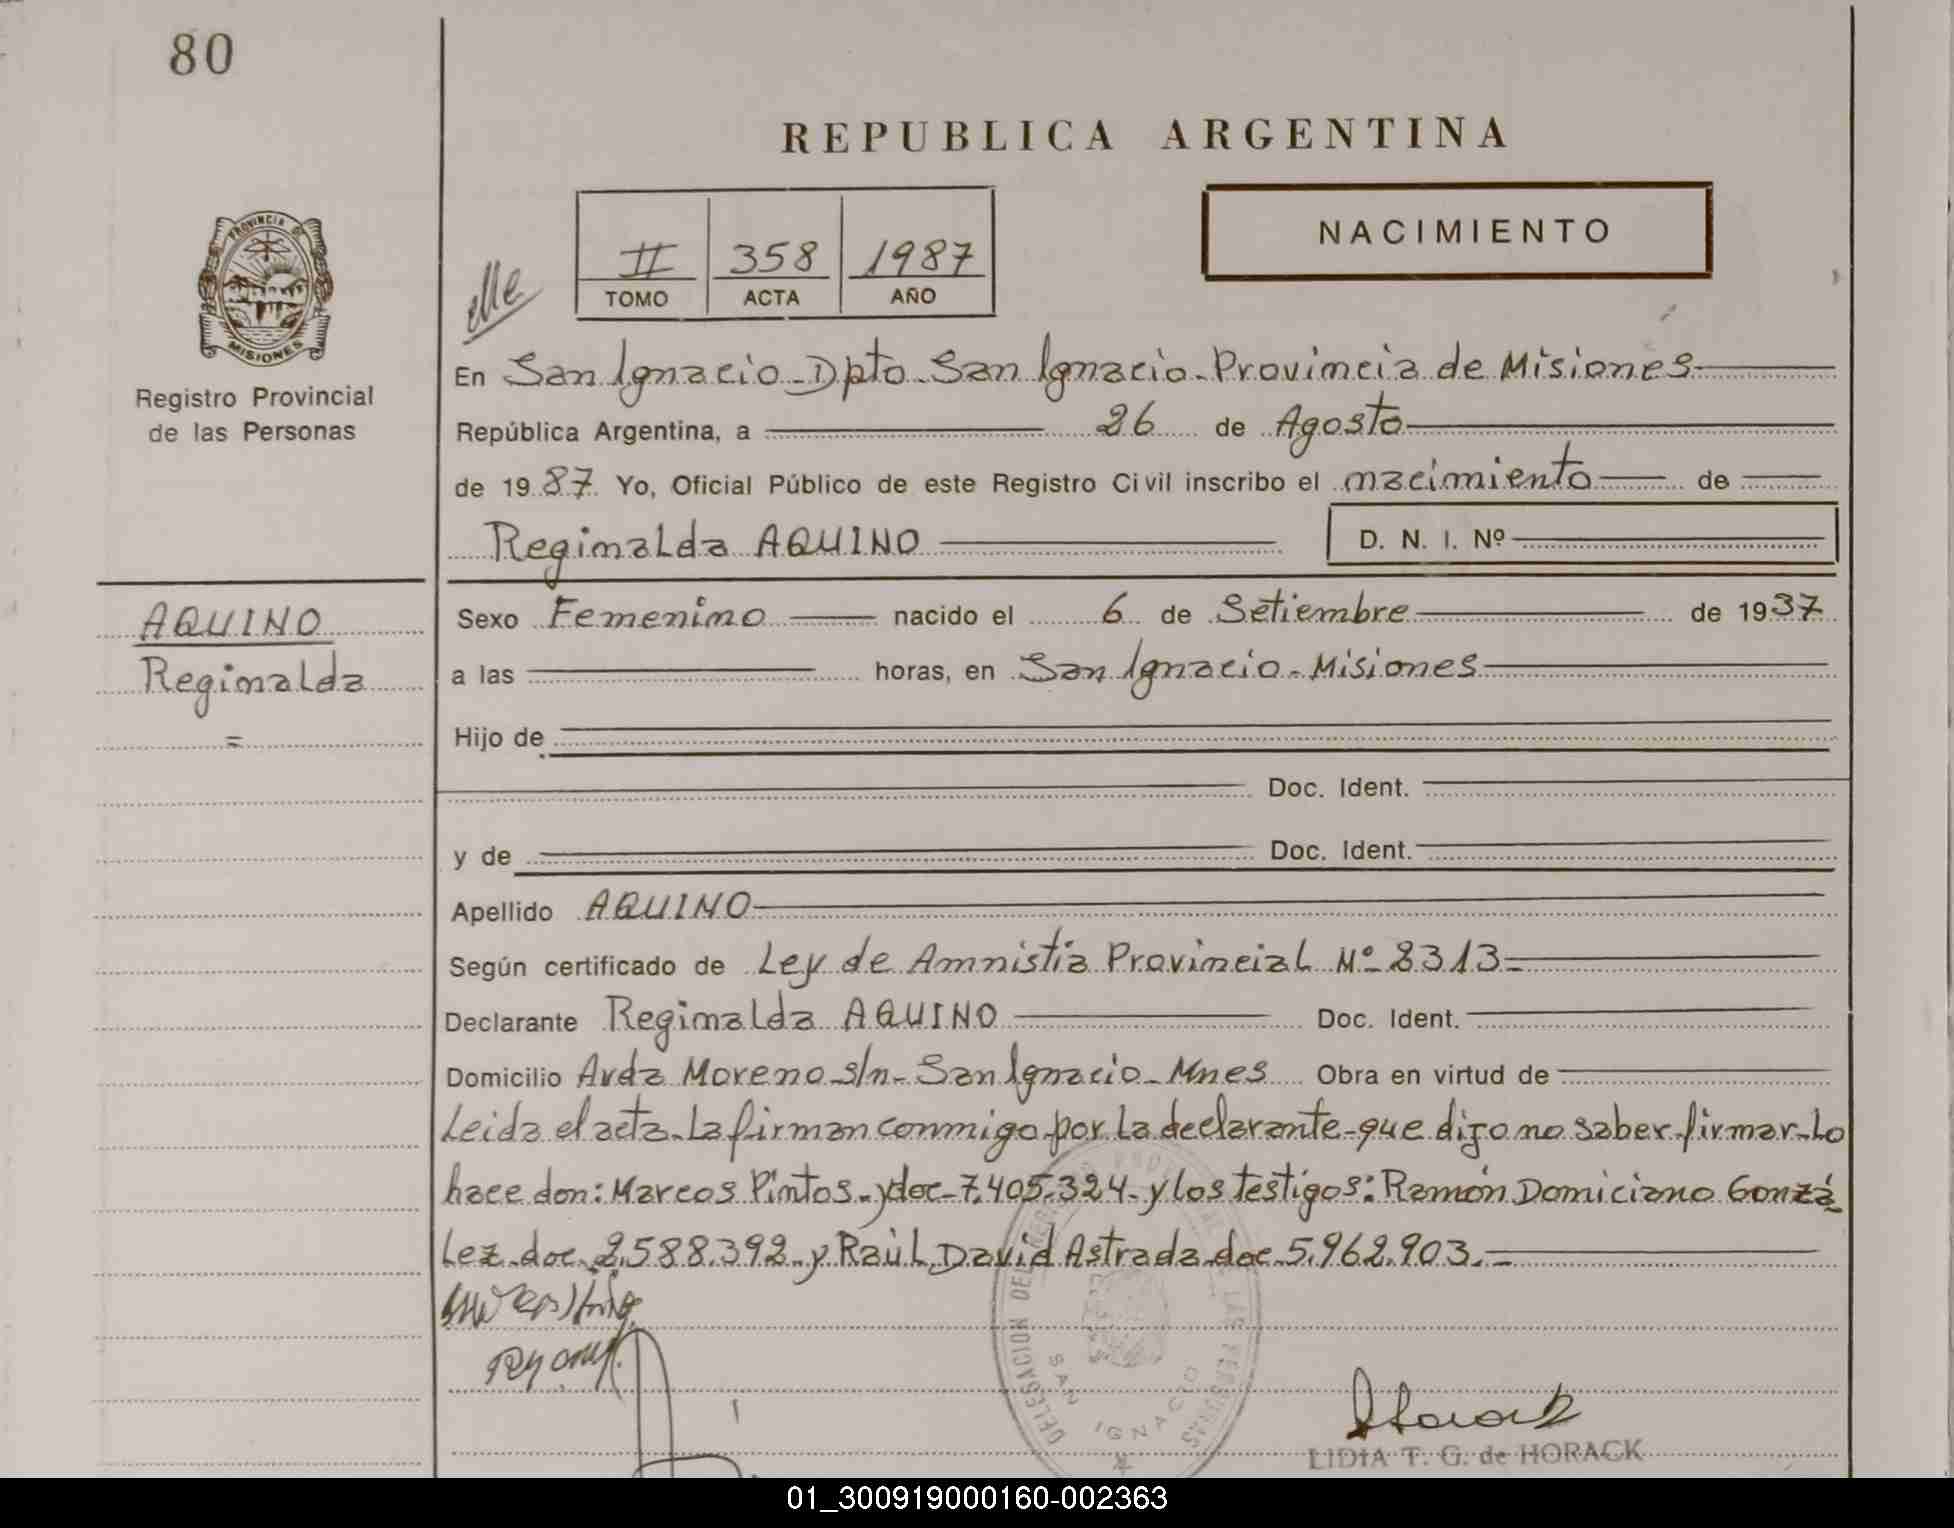 80
REPUBLICA ARGENTINA
NACIMIENTO
II 358 1987
TOMO ACTA AÑO
PROVINCIA DE
MISIONES
Registro Provincial
de las Personas
En San Ignacio - Dpto - San Ignacio - Provincia de Misiones
República Argentina, a 26 de Agosto
de 1987 Yo, Oficial Público de este Registro Civil inscribo el nacimiento de
Reginalda AQUINO D. N. I. Nº
AQUINO
Reginalda
=
Sexo Femenino nacido el 6 de Setiembre de 1937
a las horas, en San Ignacio - Misiones
Hijo de
Doc. Ident.
y de Doc. Ident.
Apellido AQUINO
Según certificado de Ley de Amnistia Provincial Nº 2313=
Declarante Reginalda AQUINO Doc. Ident.
Domicilio Avda Moreno s/n - San Ignacio - Mnes Obra en virtud de
Leida el acta - la firman conmigo - por la declarante - que dijo no saber firmar - lo
hace don: Marcos Pintos - doc - 7.405.324 - y los testigos: Ramón Domiciano Gonzá
lez - doc - 2.588.392 - y Raúl David Astrada - doc - 5.962.903. -
DELEGACION DEL REGISTRO PROVINCIAL DE LAS PERSONAS
SAN IGNACIO
LIDIA T. G. de HORACK
01_300919000160-002363